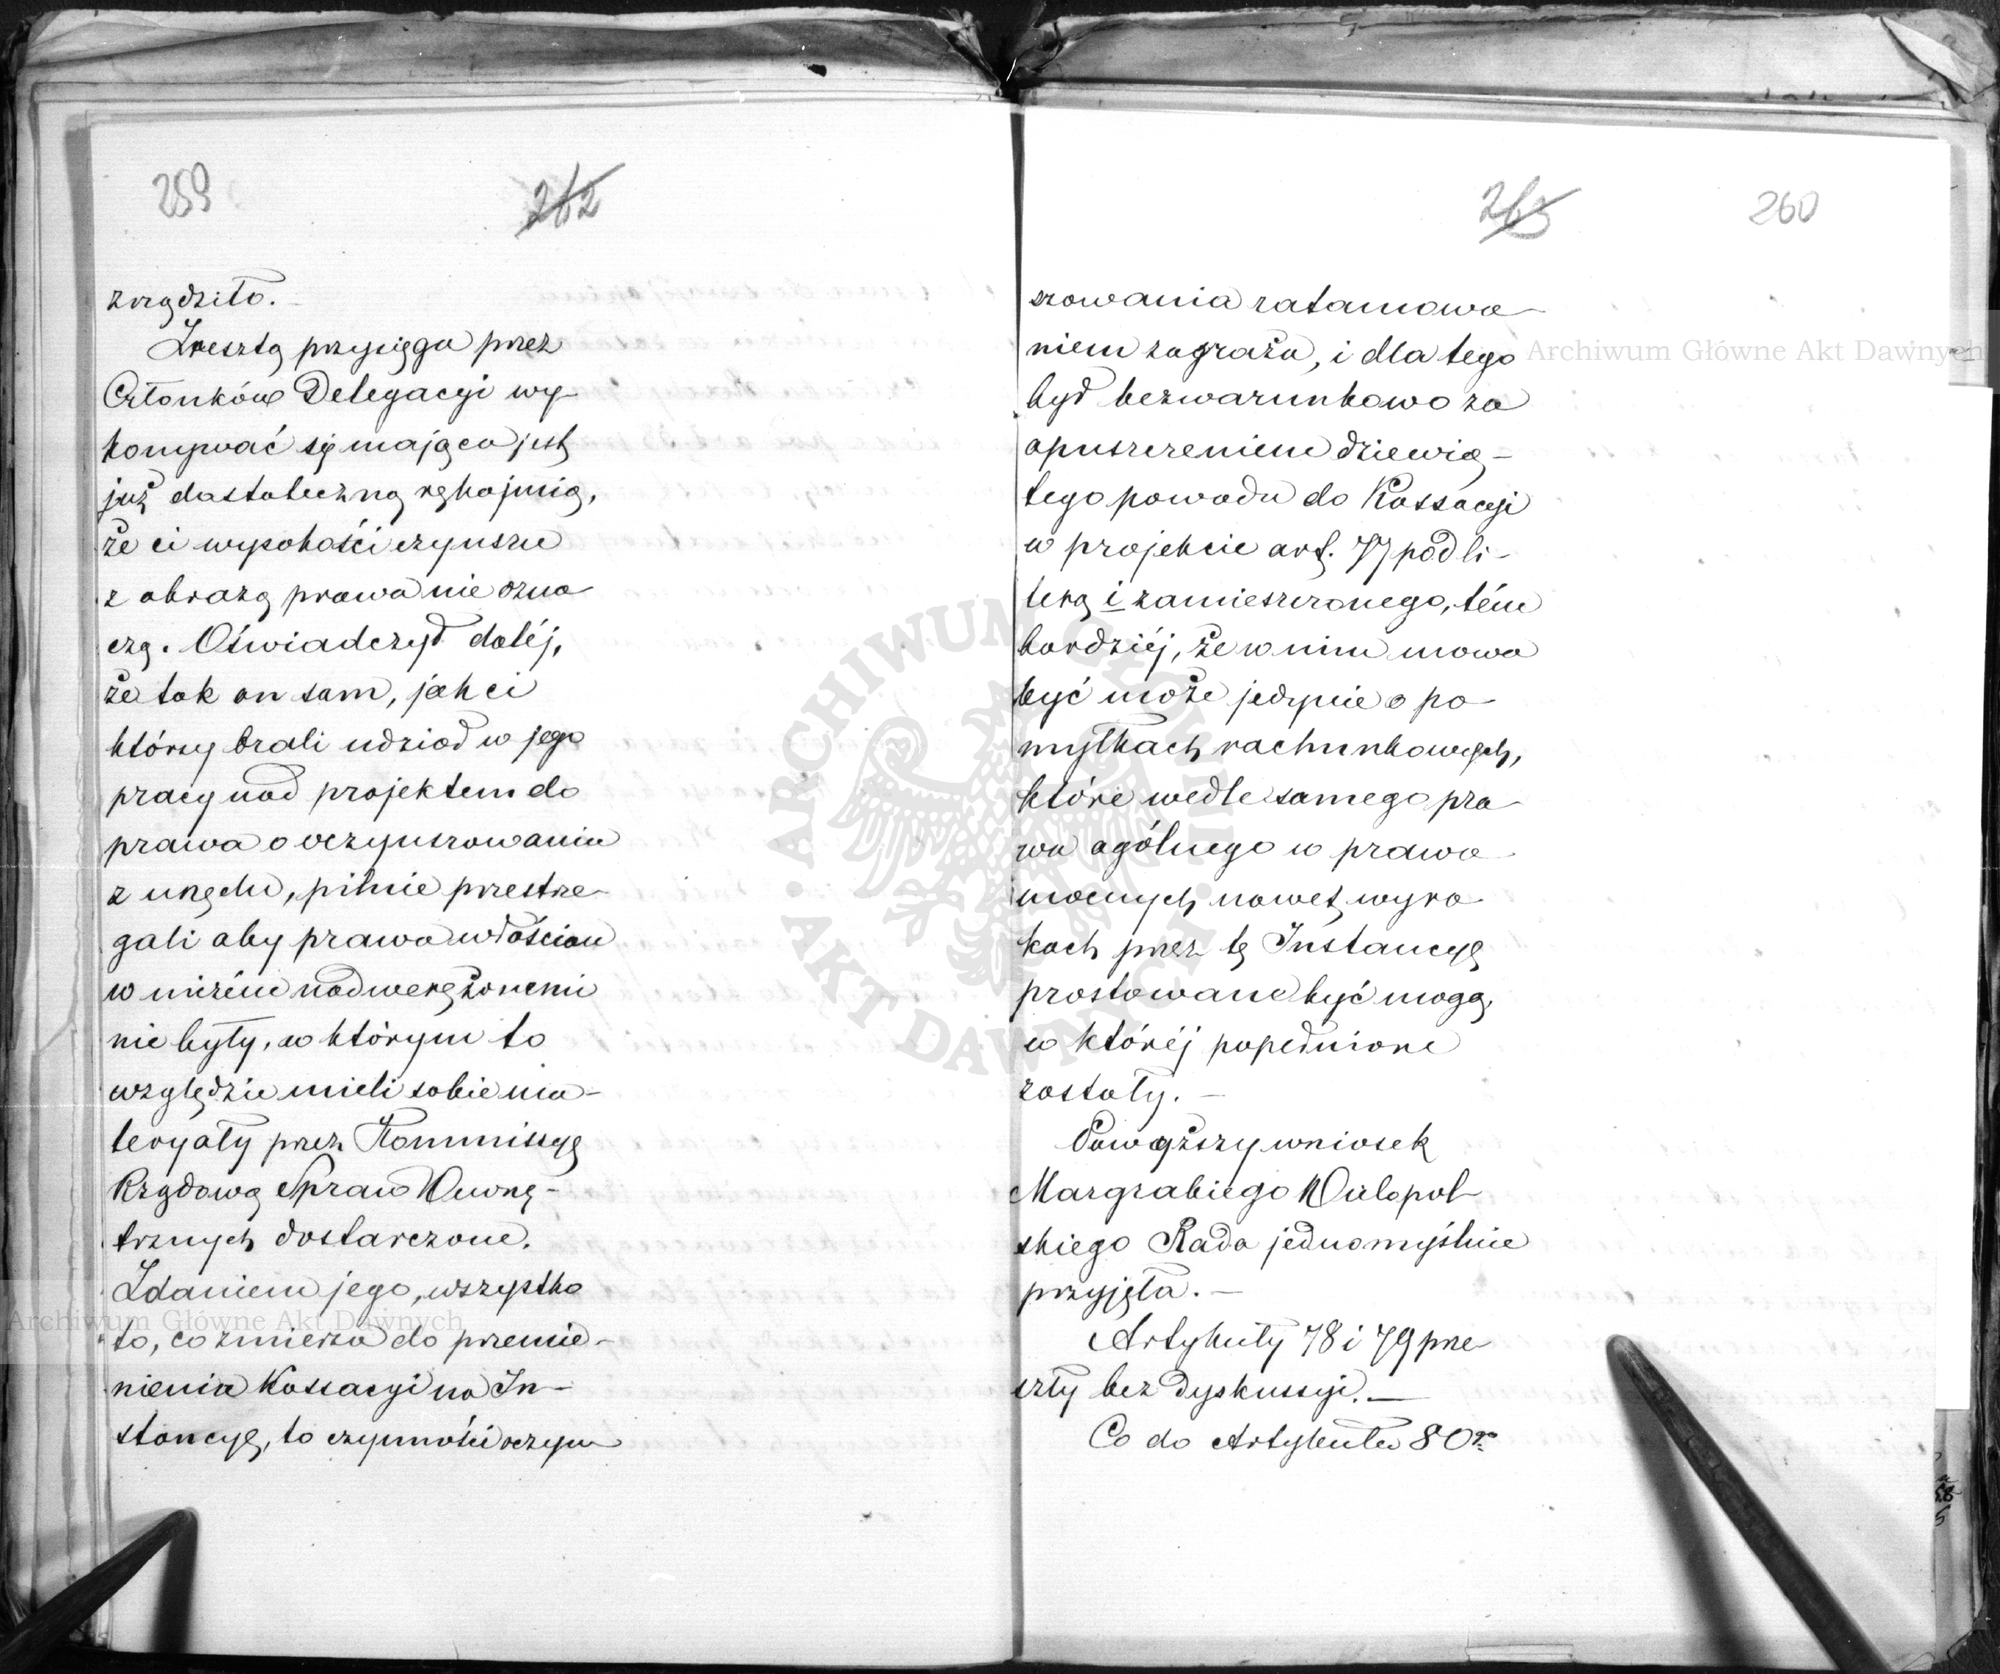 259
262
zrządziło. –
Zresztą przysięga przez
Członków Delegacyi wy-
konywać się mająca jest
już dostateczną rękojmią,
że ci wysokości czynszu
z obrazą prawa nie ozna
czą. Oświadczył daléj,
że tak on sam, jak ci
którzy brali udział w jego
pracy nad projektem do
prawa o oczynszowaniu
z urzędu, pilnie przestrze-
gali aby prawa włościan
w niczém nadwerężonemi
nie były, w którym to
względzie mieli sobie ma-
teryały przez Kommissyę
Rządową Spraw Wewnę-
trznych dostarczone.
Zdaniem jego, wszystko
to, co zmierza do przemie-
nienia Kassacyi na In-
stancyę, to czynności oczyn
263
260
szowania zatamowa-
niem zagraża, i dla tego
był bezwarunkowo za
opuszczeniem dziewią-
tego powodu do Kassacyi
w projekcie art. 77 pod li-
terą i zamieszczonego, tém
bardziéj, że w nim mowa
być może jedynie o po-
myłkach rachunkowych,
które wedle samego pra-
wa ogólnego w prawo-
mocnych nawet wyro-
kach przez tę Instancyę
prostowane być mogą,
w któréj popełnione
zostały. –
Powyższy wniosek
Margrabiego Wielopol-
skiego Rada jednomyślnie
przyjęła. –
Artykuły 78 i 79 prze-
szły bez dyskussyi. –
Co do Artykułu 80go
Archiwum Główne Akt Dawnych
Archiwum Główne Akt Dawnych
ARCHIWUM GŁÓWNE AKT DAWNYCH